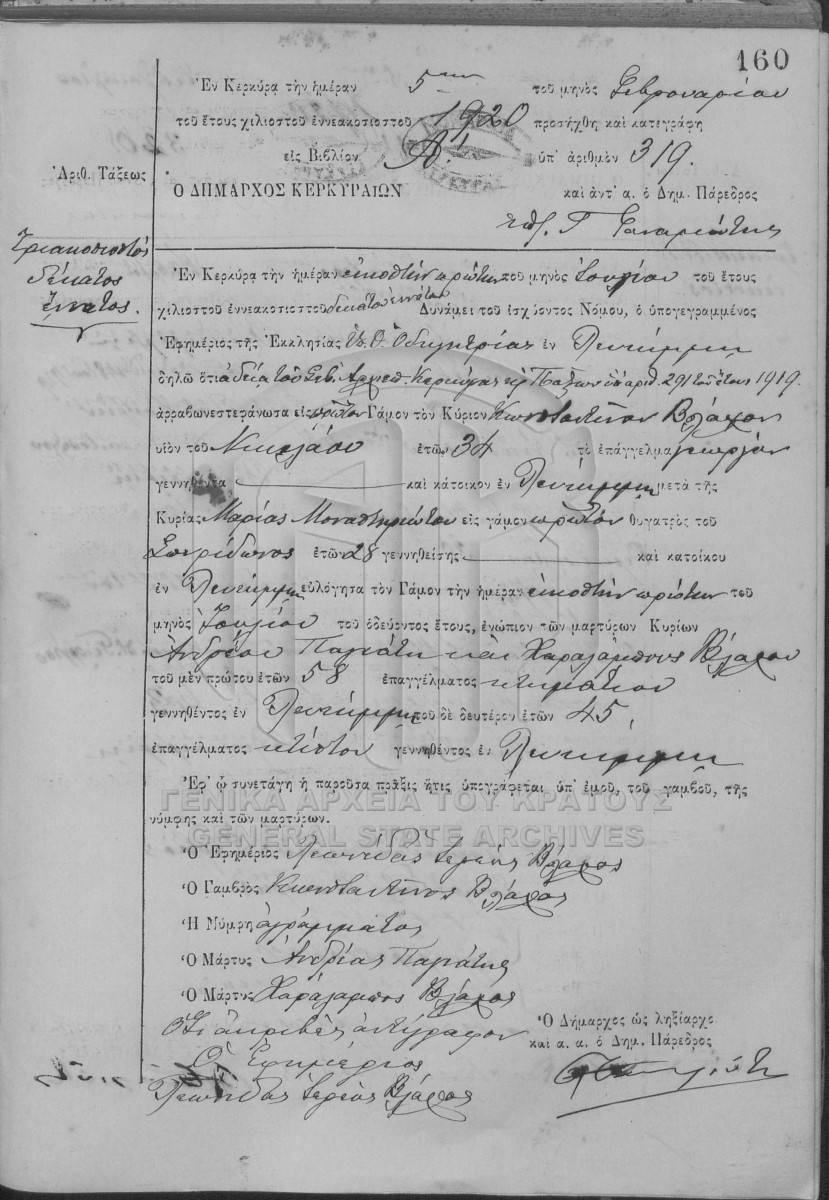 160
Ἐν Κερκύρᾳ τὴν ἡμέραν 5ην τοῦ μηνὸς Φεβρουαρίου
τοῦ ἔτους χιλιοστοῦ ἐννεακοσιοστοῦ 1920 προσήχθη καὶ κατεγράφη
εἰς Βιβλίον Α' ὑπ' ἀριθμὸν 319.
Ἀριθ. Τάξεως
Ὁ ΔΗΜΑΡΧΟΣ ΚΕΡΚΥΡΑΙΩΝ καὶ ἀντ' α. ὁ Δημ. Πάρεδρος
Τριακοσιοστός
δέκατος
ἔννατος.
Ἐν Κερκύρᾳ τὴν ἡμέραν εἰκοστὴν πρώτην τοῦ μηνὸς Ἰουλίου τοῦ ἔτους
χιλιοστοῦ ἐννεακοσιοστοῦ δεκάτου ἐννάτου Δυνάμει τοῦ ἰσχύοντος Νόμου, ὁ ὑπογεγραμμένος
Ἐφημέριος τῆς Ἐκκλησίας Ὑ. Θ. Ὁδηγητρίας ἐν Λευκίμμῃ
δηλῶ ὅτι ἀδείᾳ τοῦ Σεβ. Ἀρχιεπ. Κερκύρας κ Παξῶν ὑπ' ἀριθ. 291 τοῦ ἔτους 1919.
ἀρραβωνεστεφάνωσα εἰς πρῶτον Γάμον τὸν Κύριον Κωνσταντῖνον Βλάχον
υἱὸν τοῦ Νικολάου ἐτῶν 34 τὸ ἐπάγγελμα γεωργόν
γεννηθέντα καὶ κάτοικον ἐν Λευκίμμῃ μετὰ τῆς
Κυρίας Μαρίας Μοναστηριώτου εἰς γάμον πρῶτον θυγατρὸς τοῦ
Σπυρίδωνος ἐτῶν 28 γεννηθείσης καὶ κατοίκου
ἐν Λευκίμμῃ εὐλόγησα τὸν Γάμον τὴν ἡμέραν εἰκοστὴν πρώτην τοῦ
μηνὸς Ἰουλίου τοῦ ὁδεύοντος ἔτους, ἐνώπιον τῶν μαρτύρων Κυρίων
Ἀνδρέου Παγιάτη καὶ Χαραλάμπους Βλάχου
τοῦ μὲν πρώτου ἐτῶν 58 ἐπαγγέλματος κτηματίου
γεννηθέντος ἐν Λευκίμμῃ τοῦ δὲ δευτέρου ἐτῶν 45,
ἐπαγγέλματος κτίστου γεννηθέντος ἐν Λευκίμμῃ
Ἐφ' ᾧ συνετάγη ἡ παροῦσα πρᾶξις ἥτις ὑπογράφεται ὑπ' ἐμοῦ, τοῦ γαμβοῦ, τῆς
νύμφης καὶ τῶν μαρτύρων.
ΓΕΝΙΚΑ ΑΡΧΕΙΑ ΤΟΥ ΚΡΑΤΟΥΣ
GENERAL STATE ARCHIVES
Ὁ Ἐφημέριος Λεωνίδας Ἱερεὺς Βλάχος
Ὁ Γαμβρὸς Κωνσταντῖνος Βλάχος
Ἡ Νύμφη ἀγράμματος
Ὁ Μάρτυς Ἀνδρέας Παγιάτης
Ὁ Μάρτυς Χαράλαμπος Βλάχος
Ὅτι ἀκριβὲς ἀντίγραφον
Ὁ Ἐφημέριος
Λεωνίδας Ἱερεὺς Βλάχος
Ὁ Δήμαρχος ὡς ληξίαρχο
καὶ α. α. ὁ Δημ. Πάρεδρος